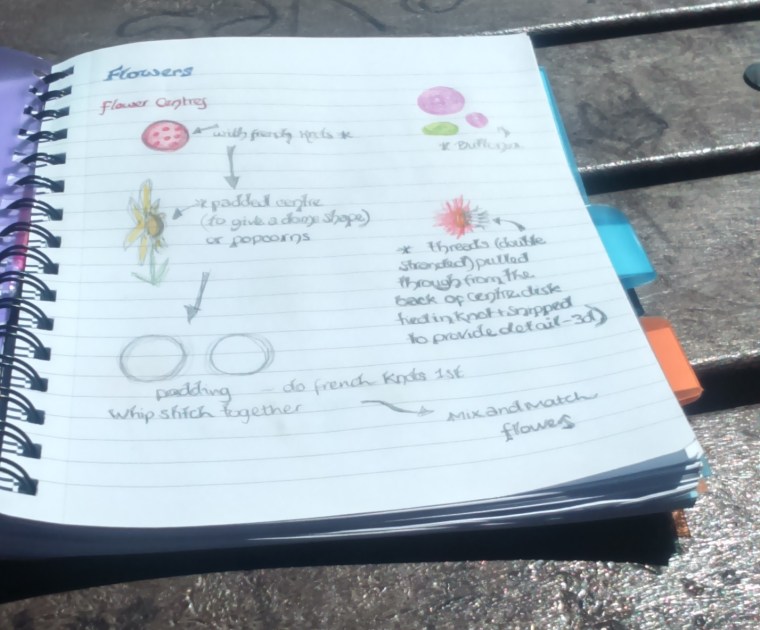 Flowers
Flower Centres
with french knots *
* Buttons
* padded centre
(to give a dome shape)
or popcorns
* threads (double
stranded) pulled
through from the
back of centre disk
tied in knot + snipped
to provide detail - 3d)
padding - do french knots 1st
whip stitch together
Mix and Match
flowers